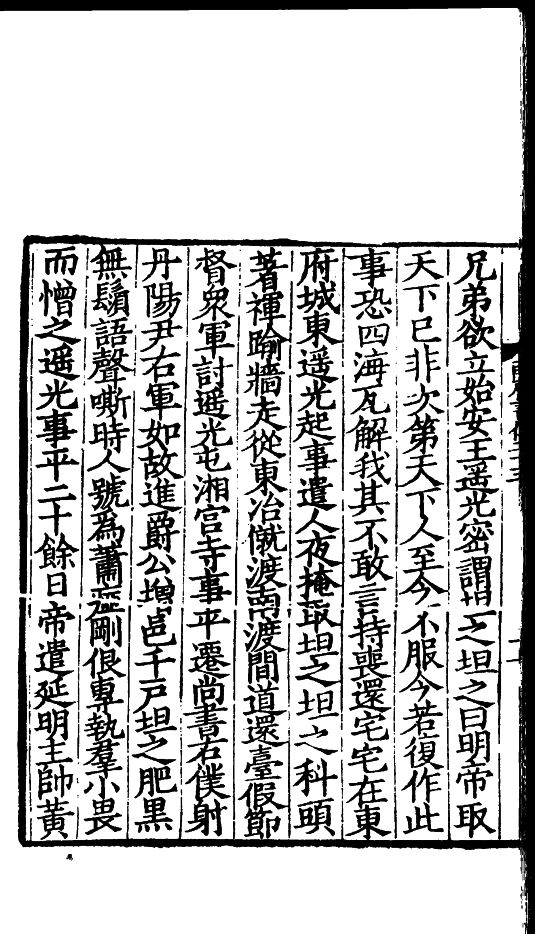 兄弟欲立始安王遥光密謂坦之坦之曰明帝取
天下已非次第天下人至今不服今若復作此
事恐四海瓦解我其不敢言持喪還宅宅在東
府城東遥光起事遣人夜掩取坦之坦之科頭
著褌踰牆走從東冶僦渡南渡間道還臺假節
督衆軍討遥光屯湘宫寺事平遷尚書右僕射
丹陽尹右軍如故進爵公增邑千戸坦之肥黒
無鬚語聲嘶時人號為蕭瘂剛佷專執羣小畏
而憎之遥光事平二十餘日帝遣延明主帥黄